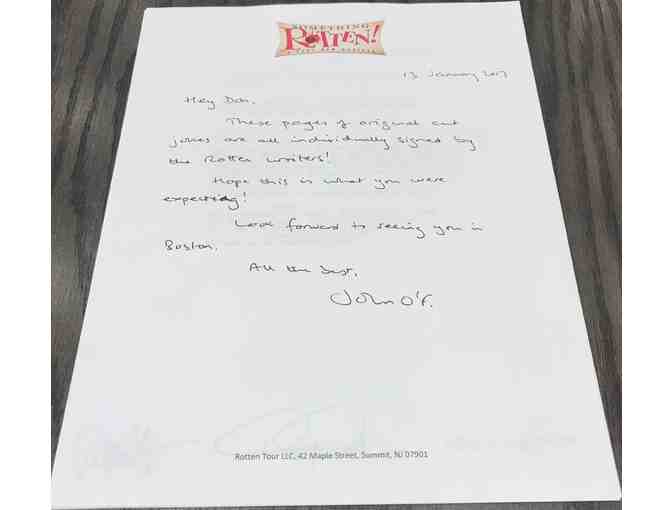 SOMETHING
ROTTEN!
A VERY NEW MUSICAL
13 January 2017
Hey Dan,
These pages of original cut
jokes are all individually signed by
the Rotten writers!
Hope this is what you were
expecting!
Look forward to seeing you in
Boston.
All the best,
John O'F.
Rotten Tour LLC, 42 Maple Street, Summit, NJ 07901